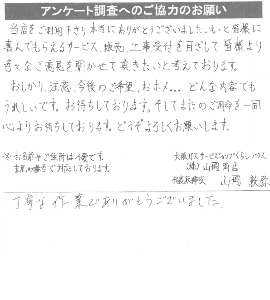 アンケート調査へのご協力のお願い
当店をご利用下さり本当にありがとうございました。もっと皆様に
喜んでもらえるサービス、販売、工事受付を目ざして皆様より
ご意見を聞かせて頂きたいと考えております。
おしかり、注意、今後のご希望、おホメ…どんな内容でも
うれしいです。お待ちしております。そしてまたのご用命を一同
心よりお待ちしております。どうぞよろしくお願いします。
※お名前やご住所は不要です。
大阪ガスサービスショップ
(株)山岡商店
山岡
丁寧な作業ありがとうございました